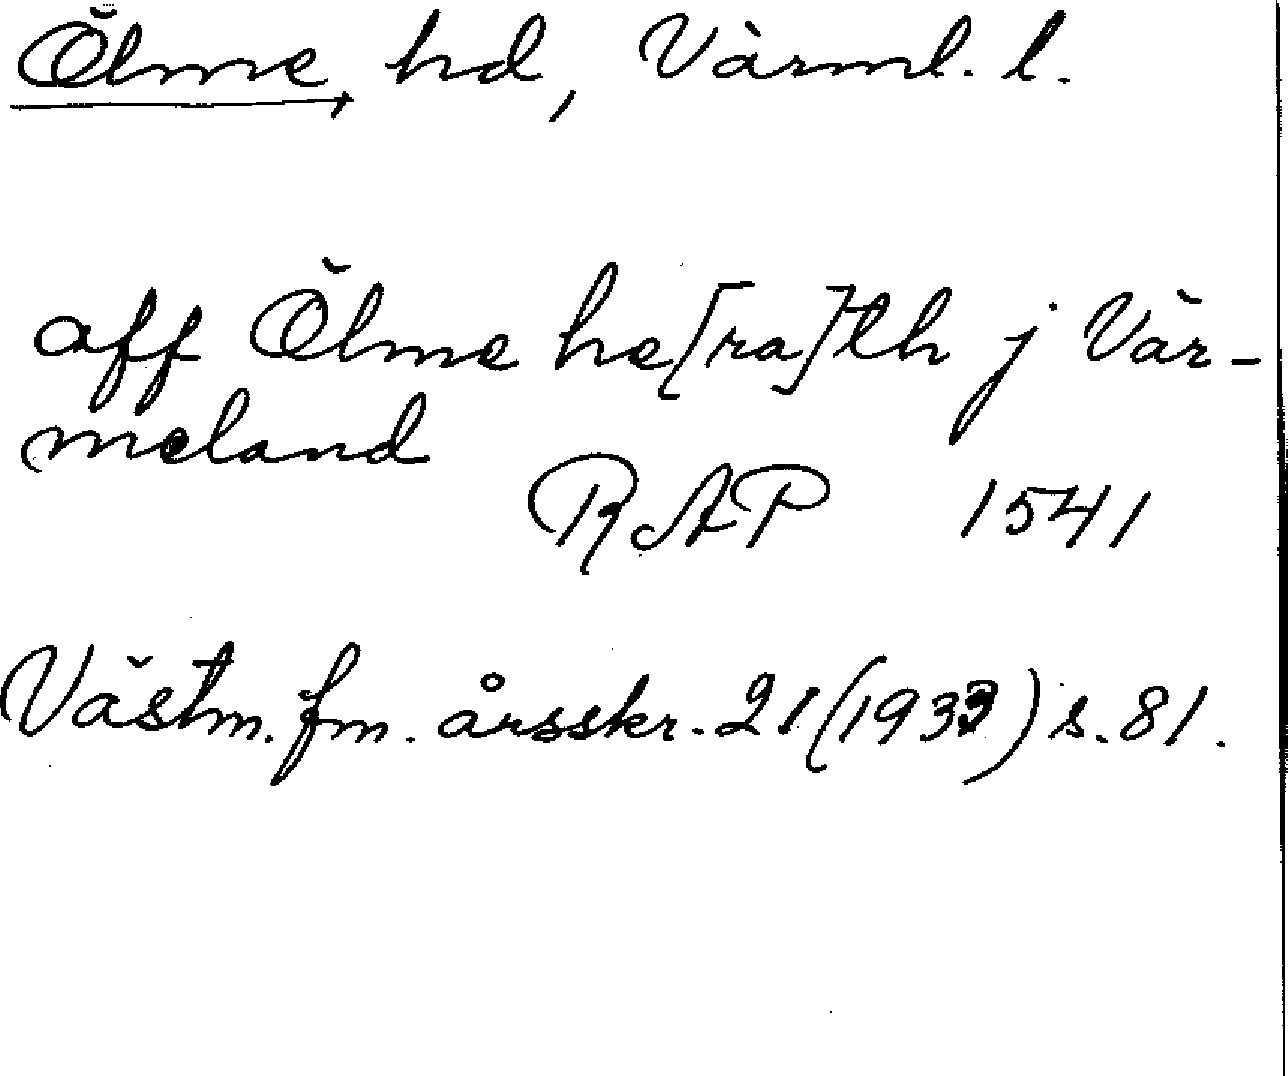 Ölme, hd, Värml. l.
aff Ölme he[ra]th j Vär-
meland
RAP 1541
Västm. fm. årsskr. 21 (1933) s. 81.